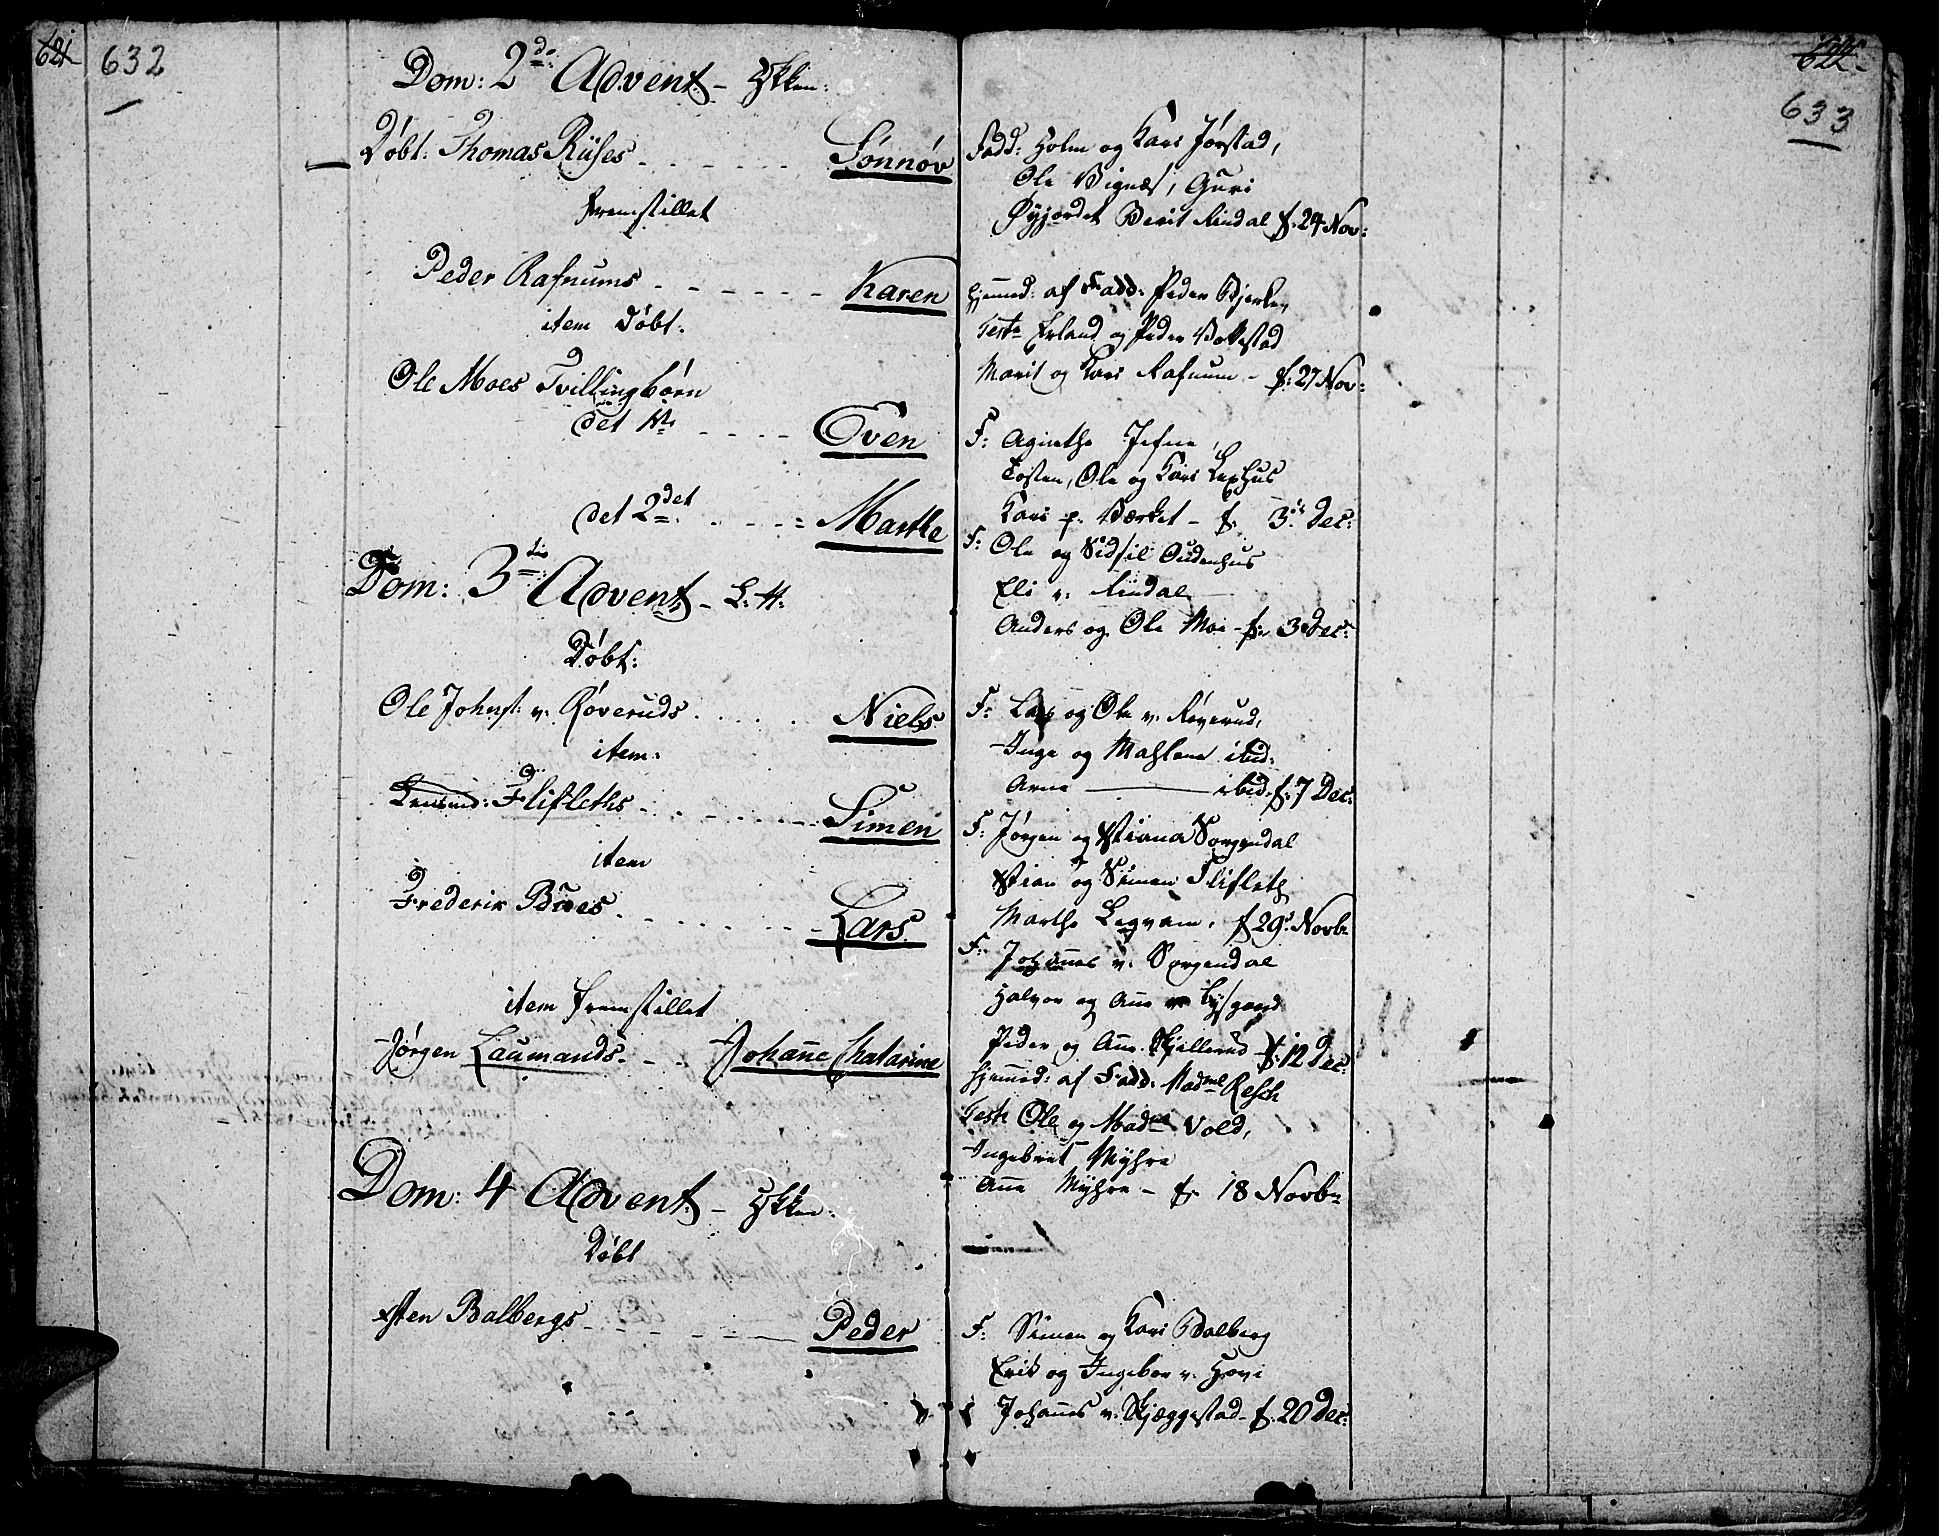 621
632
Dom: 2de Advent -
Døbt: Thomas Riises - - - - - Sønnøv
fremstillet
Peder Rafnums - - - - - - Karen
item Døbt:
Ole Moes Tvillingbørn
det 1te - - - - Even
det 2det - - - - Marthe
Dom: 3tio Advent - L: H:
Døbt:
Ole Johns: v. Røveruds - - - - - Niels
item:
Flifleths - - - - - - Simen
item
Frederik Bøes - - - - - - Lars
item fremstillet
Jørgen Laumands - - Johanne Chatarine
Dom: 4 Advent -
Døbt
Østen Balbergs - - - - - Peder
622
633
Fadd: Holm og Kari Jørstad,
Ole Vignes, Guri
Øyjordet Berit Rindal f. 24 Nov:
hjemmed: af Fadd: Peder Bjerke,
Teste Erland og Peder
Marit og Kari Rafnum - f: 27 Nov:
F: Agnethe Jefne,
Tosten, Ole og Kari Lexhus
Kari p. Værket - f. 3 Dec:
F: Ole og Sidsil Oudenhus
Eli v. Rindal
Anders og Ole Moe - f. 3 Dec:
F: Lars og Ole v. Røverud,
Inge og Mahlene ibid:
Arne ——— ibid. f: 7 Dec:
F: Jørgen og Stiana Sorgendal
Stian og Simen Flifleth
Marthe Legvam, f 29 Novb:
F: Johannes v. Sorgendal
Halvor og Ane Lysgaard
Peder og Ane Skjellerud f: 12 Dec:
hjemmed: af Fadd: Madme Resch
Teste Ole og Madme Vold,
Ingebret Myhre
Ane Myhre - f. 18 Novb:
F: Simen og Kari Balberg
Erik og Ingebor v. Hovi
Johannes v. Skjæggestad - f. 20 Dec: